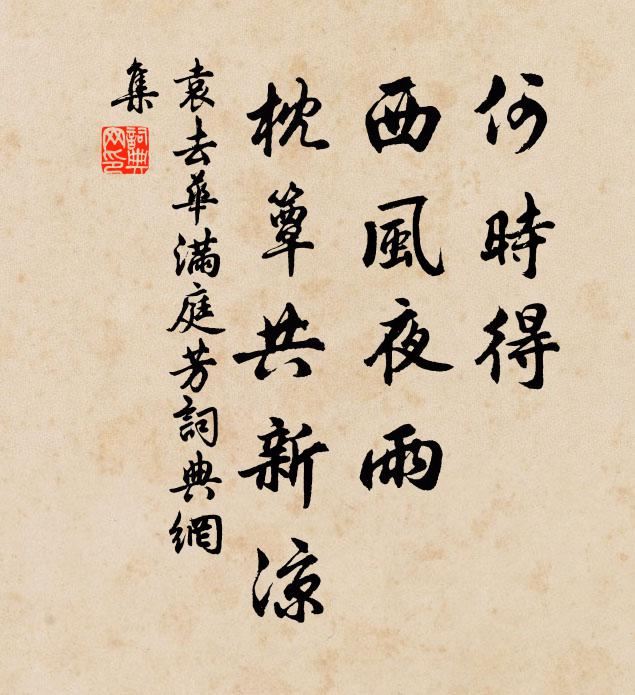 何時得
西風夜雨
枕簟共新涼
袁去華滿庭芳詞典網
集
詞典網印